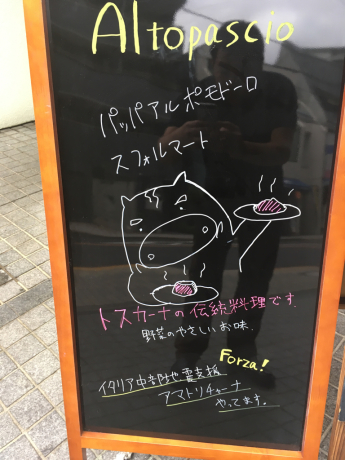 Altopascio
パッパアルポモドーロ
スフォルマート
トスカーナの伝統料理です
野菜のやさしいお味.
Forza!
イタリア中部地震支援
アマトリチャーナ
やってます.